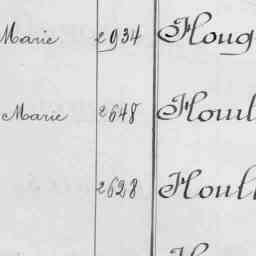 Marie 2934 Houg
Marie 2648 Houl
2628 Houll